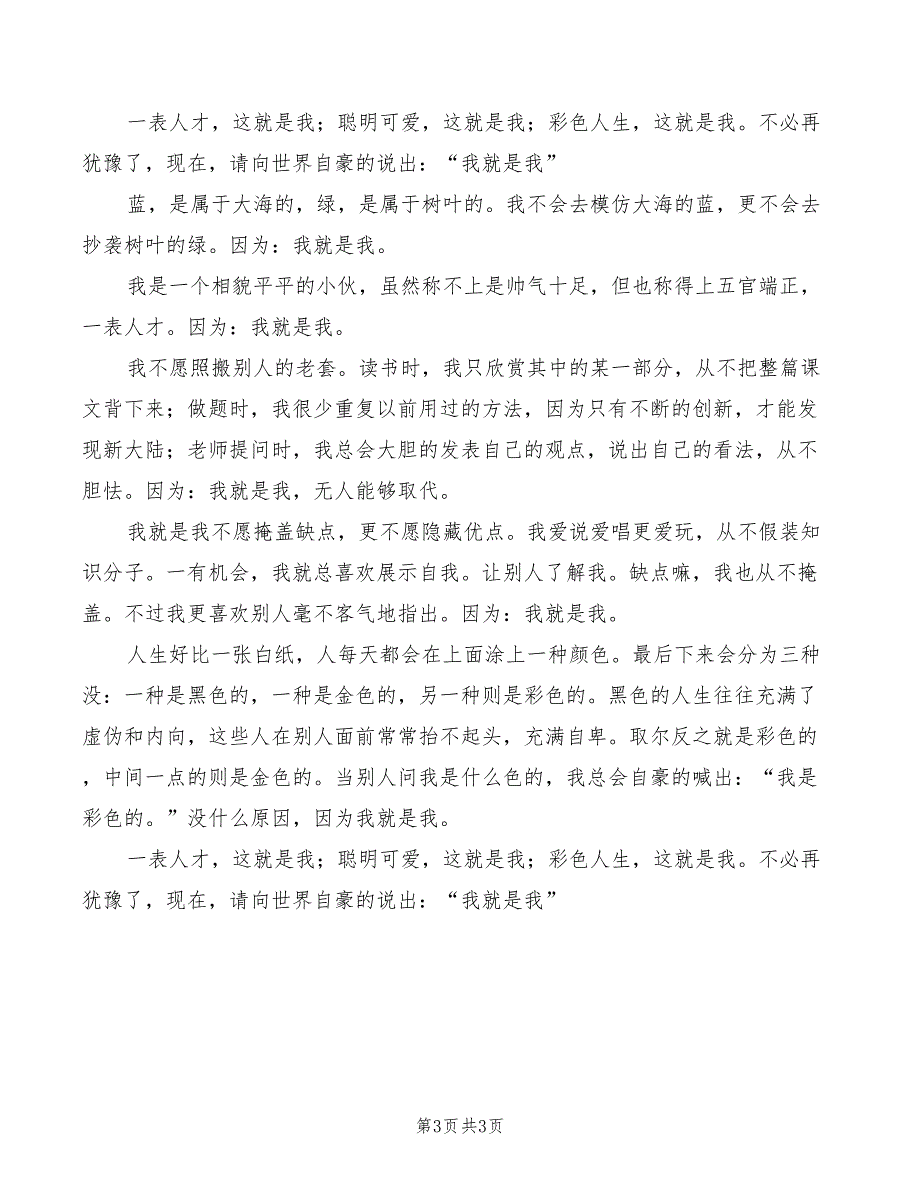 一表人才，这就是我；聪明可爱，这就是我；彩色人生，这就是我。不必再
犹豫了，现在，请向世界自豪的说出：“我就是我”
蓝，是属于大海的，绿，是属于树叶的。我不会去模仿大海的蓝，更不会去
抄袭树叶的绿。因为：我就是我。
我是一个相貌平平的小伙，虽然称不上是帅气十足，但也称得上五官端正，
一表人才。因为：我就是我。
我不愿照搬别人的老套。读书时，我只欣赏其中的某一部分，从不把整篇课
文背下来；做题时，我很少重复以前用过的方法，因为只有不断的创新，才能发
现新大陆；老师提问时，我总会大胆的发表自己的观点，说出自己的看法，从不
胆怯。因为：我就是我，无人能够取代。
我就是我不愿掩盖缺点，更不愿隐藏优点。我爱说爱唱更爱玩，从不假装知
识分子。一有机会，我就总喜欢展示自我。让别人了解我。缺点嘛，我也从不掩
盖。不过我更喜欢别人毫不客气地指出。因为：我就是我。
人生好比一张白纸，人每天都会在上面涂上一种颜色。最后下来会分为三种
没：一种是黑色的，一种是金色的，另一种则是彩色的。黑色的人生往往充满了
虚伪和内向，这些人在别人面前常常抬不起头，充满自卑。取尔反之就是彩色的
，中间一点的则是金色的。当别人问我是什么色的，我总会自豪的喊出：“我是
彩色的。”没什么原因，因为我就是我。
一表人才，这就是我；聪明可爱，这就是我；彩色人生，这就是我。不必再
犹豫了，现在，请向世界自豪的说出：“我就是我”
第3页 共3页